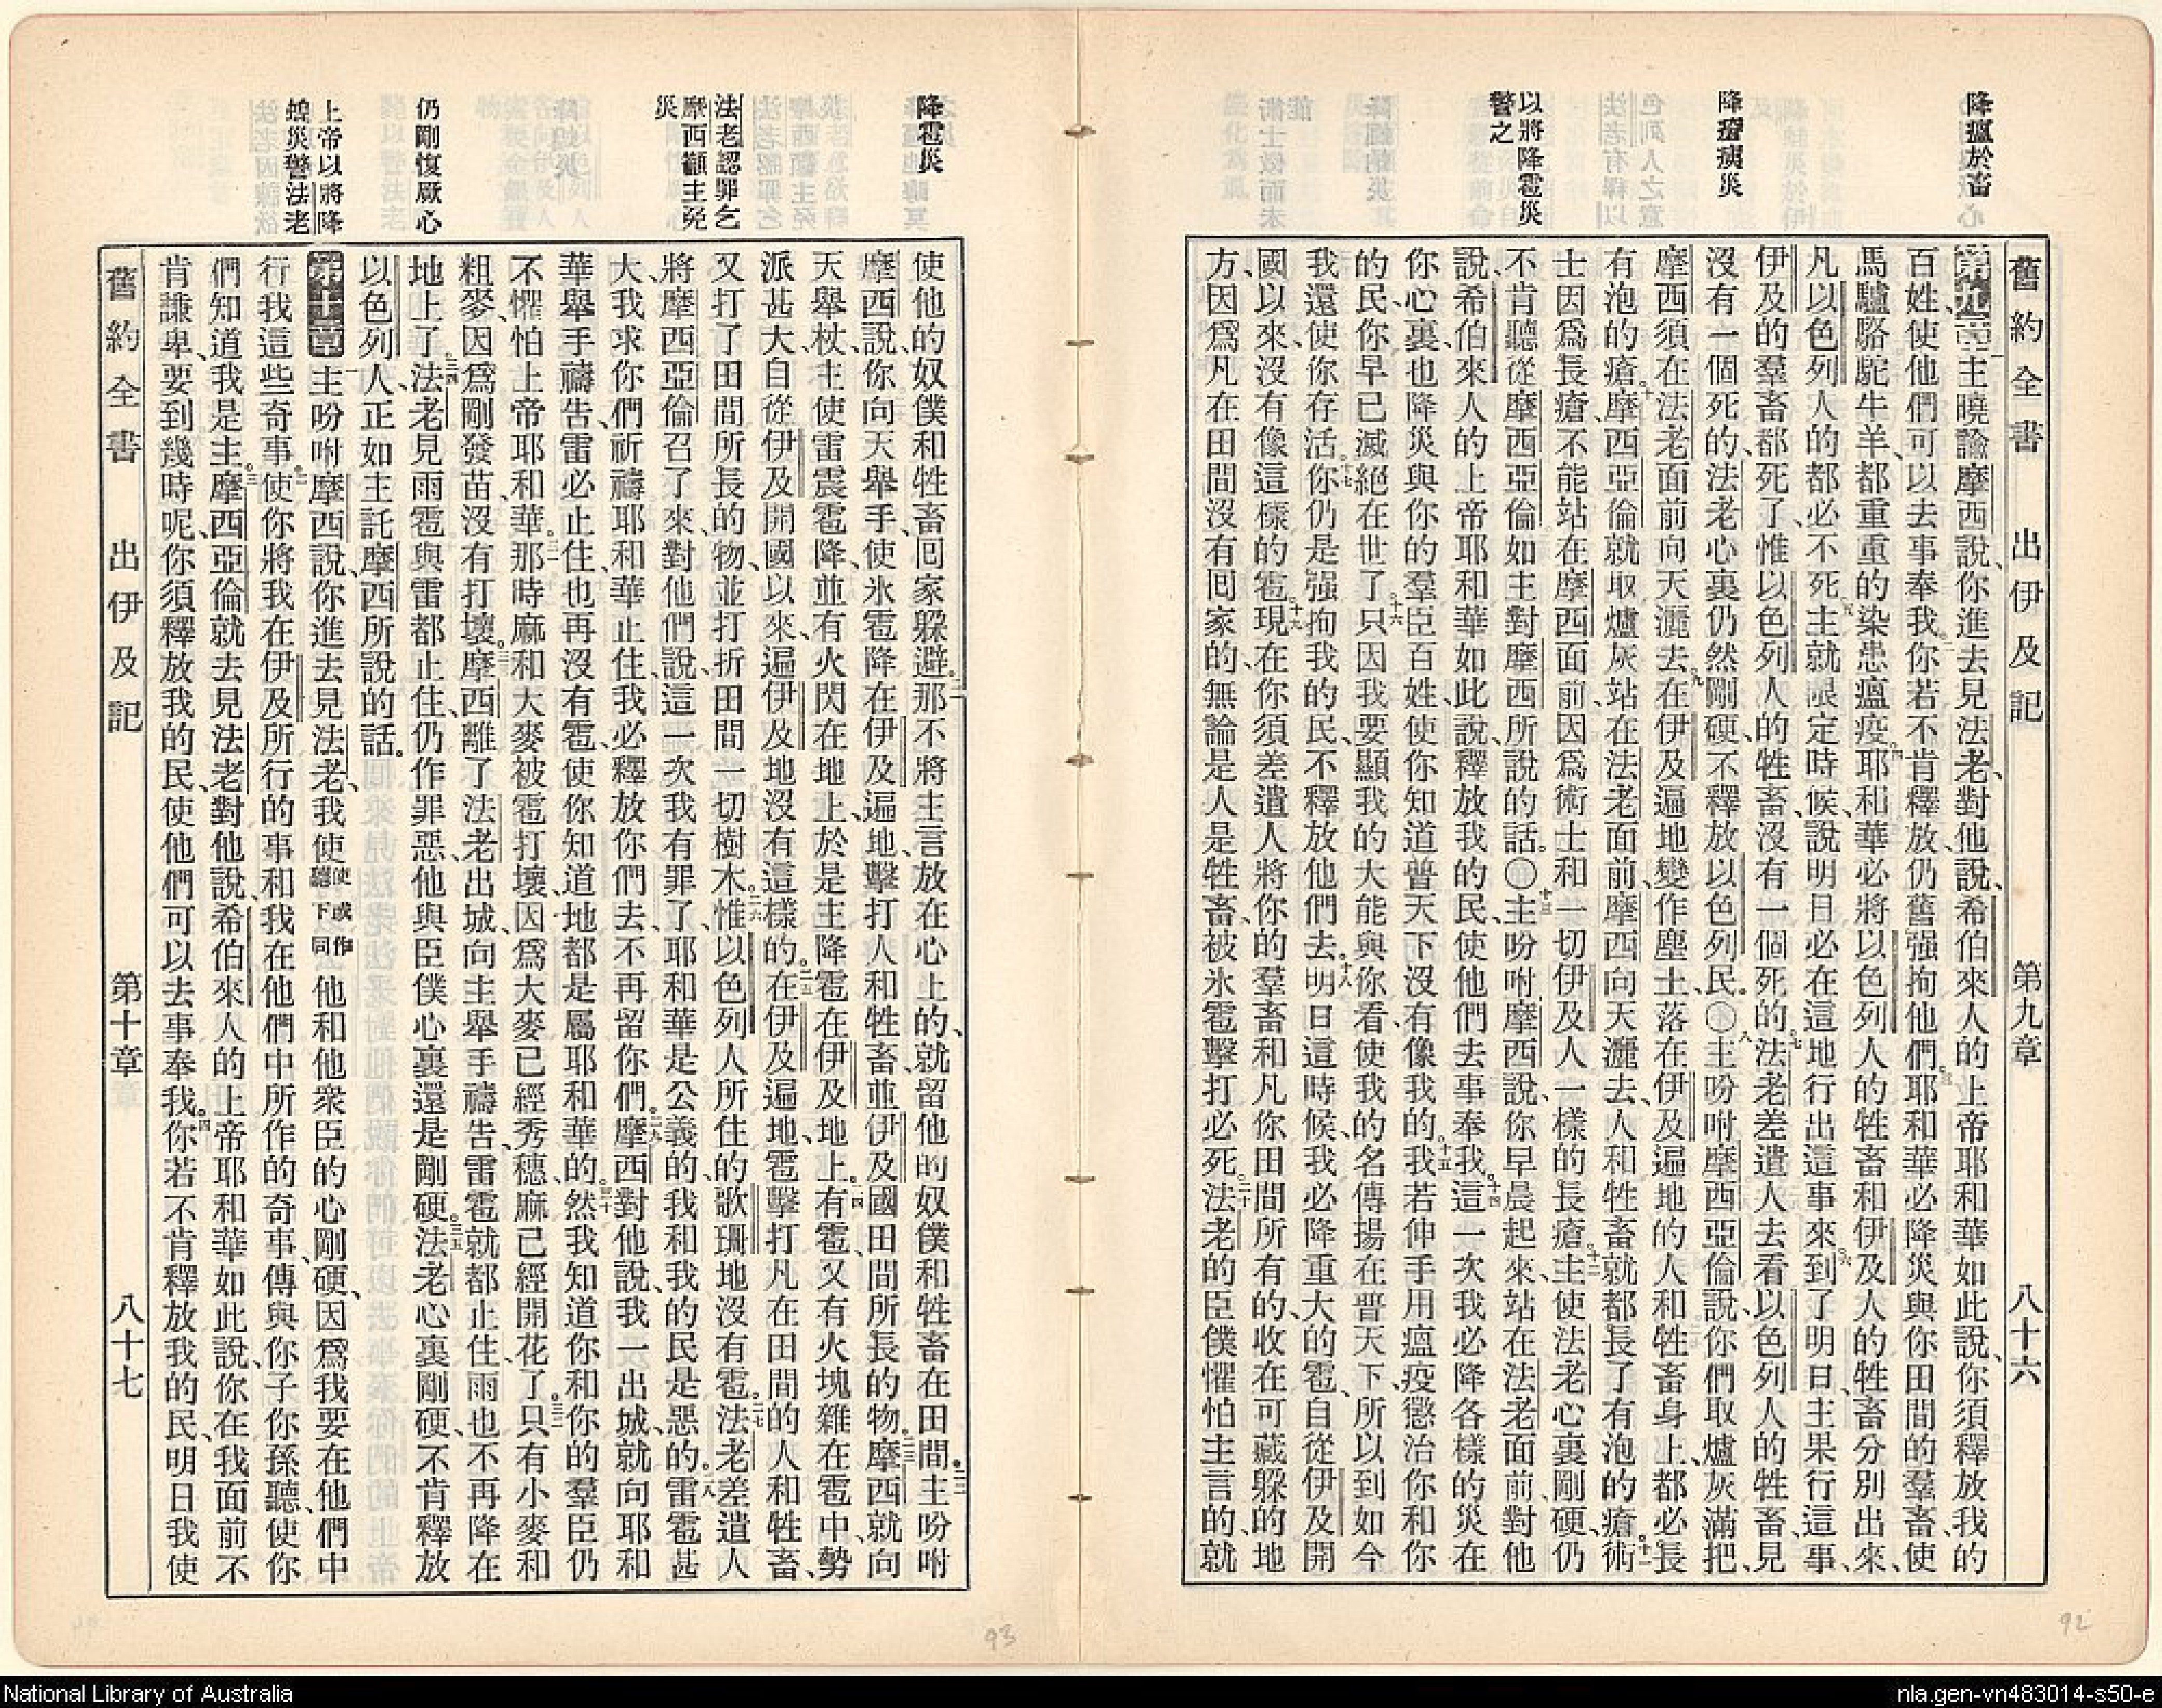 降瘟於畜
降瘡痍災
以將降雹災
警之
舊約全書 出伊及記 第九章 八十六
第九章 一主曉諭摩西說、你進去見法老、對他說、希伯來人的上帝耶和華如此說、你須釋放我的
百姓、使他們可以去事奉我。二你若不肯釋放、仍舊强拘他們、三耶和華必降災與你田間的羣畜、使
馬驢駱駝牛羊、都重重的染患瘟疫。四耶和華必將以色列人的牲畜和伊及人的牲畜分別出來、
凡以色列人的都必不死。五主就限定時候、說明日必在這地行出這事來。六到了明日、主果行這事、
伊及的羣畜都死了、惟以色列人的牲畜、沒有一個死的。七法老差遣人去看、以色列人的牲畜、見
沒有一個死的、法老心裏仍然剛硬、不釋放以色列民。〇八主吩咐摩西亞倫說、你們取爐灰滿把、
摩西須在法老面前向天灑去。九在伊及遍地變作塵土、落在伊及遍地的人和牲畜身上、都必長
有泡的瘡。十摩西亞倫就取爐灰、站在法老面前、摩西向天灑去、人和牲畜就都長了有泡的瘡。十一術
士因爲長瘡、不能站在摩西面前、因爲術士和一切伊及人一樣的長瘡。十二主使法老心裏剛硬、仍
不肯聽從摩西亞倫、如主對摩西所說的話。〇十三主吩咐摩西說、你早晨起來、站在法老面前、對他
說、希伯來人的上帝耶和華如此說、釋放我的民、使他們去事奉我。十四這一次我必降各樣的災在
你心裏、也降災與你的羣臣百姓、使你知道普天下沒有像我的。十五我若伸手用瘟疫懲治你和你
的民、你早已滅絕在世了。十六只因我要顯我的大能與你看、使我的名傳揚在普天下、所以到如今
我還使你存活。十七你仍是强拘我的民、不釋放他們去。十八明日這時候、我必降重大的雹、自從伊及開
國以來、沒有像這樣的雹。十九現在你須差遣人將你的羣畜和凡你田間所有的、收在可藏躲的地
方、因爲凡在田間沒有囘家的、無論是人是牲畜、被氷雹擊打必死。二十法老的臣僕懼怕主言的、就
降雹災
法老認罪乞
摩西籲主免
災
仍剛愎厥心
上帝以將降
蝗災警法老
使他的奴僕和牲畜、囘家躱避。二一那不將主言放在心上的、就留他的奴僕和牲畜在田間。二二主吩咐
摩西說、你向天舉手、使氷雹降在伊及遍地、擊打人和牲畜、並伊及國田間所長的物。二三摩西就向
天舉杖、主使雷震雹降、並有火閃在地上、於是主降雹在伊及地上。二四有雹、又有火塊雜在雹中、勢
派甚大、自從伊及開國以來、遍伊及地沒有這樣的。二五在伊及遍地、雹擊打凡在田間的人和牲畜、
又打了田間所長的物、並打折田間一切樹木。二六惟以色列人所住的歌珊地沒有雹。二七法老差遣人
將摩西亞倫召了來、對他們說、這一次我有罪了、耶和華是公義的、我和我的民是惡的。二八雷雹甚
大、我求你們祈禱耶和華止住、我必釋放你們去、不再留你們。二九摩西對他說、我一出城、就向耶和
華舉手禱告、雷必止住、也再沒有雹、使你知道地都是屬耶和華的。三十然我知道你和你的羣臣仍
不懼怕上帝耶和華。三一那時麻和大麥被雹打壞、因爲大麥已經秀穗、麻已經開花了。三二只有小麥和
粗麥、因爲剛發苗、沒有打壞。三三摩西離了法老出城、向主舉手禱告、雷雹就都止住、雨也不再降在
地上了。三四法老見雨雹與雷都止住、仍作罪惡、他與臣僕心裏還是剛硬。三五法老心裏剛硬、不肯釋放
以色列人、正如主託摩西所說的話。
第十章 一主吩咐摩西說、你進去見法老、我使使或作聽下同他和他衆臣的心剛硬、因爲我要在他們中
行我這些奇事。二使你將我在伊及所行的事、和我在他們中所作的奇事、傳與你子你孫聽、使你
們知道我是主。三摩西亞倫就去見法老、對他說、希伯來人的上帝耶和華如此說、你在我面前不
肯謙卑、要到幾時呢、你須釋放我的民、使他們可以去事奉我。四你若不肯釋放我的民、明日我使
舊約全書 出伊及記 第十章 八十七
93
92
National Library of Australia
nla.gen-vn483014-s50-e